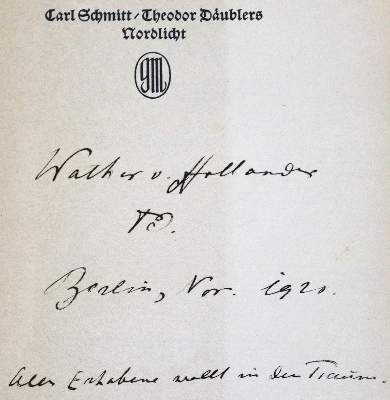 Carl Schmitt / Theodor Däublers
Nordlicht
GM
Walther v. Hollander
Berlin, Nov. 1920.
Alles Erhabene wallt in den Traum.